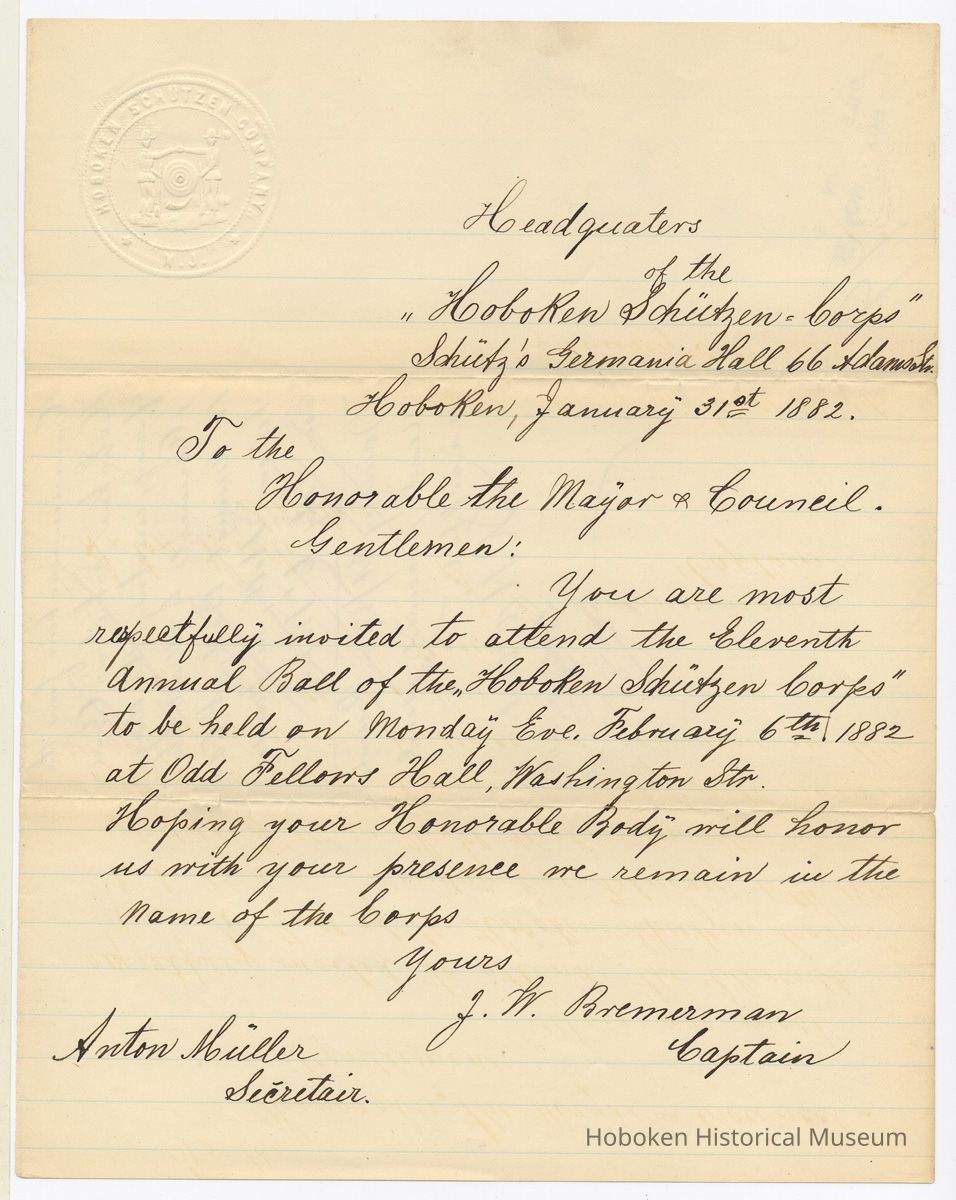 HOBOKEN SCHÜTZEN COMPANY.
N.J.
Headquaters
of the
„Hoboken Schützen=Corps"
Schütz's Germania Hall 66 Adams Str.
Hoboken, January 31st 1882.
To the
Honorable the Mayor & Council.
Gentlemen:
You are most
respectfully invited to attend the Eleventh
Annual Ball of the „Hoboken Schützen Corps"
to be held on Monday Eve. February 6th 1882
at Odd Fellows Hall, Washington Str.
Hoping your Honorable Body will honor
us with your presence we remain in the
name of the Corps
Yours
J. W. Bremerman
Captain
Anton Müller
Secretair.
Hoboken Historical Museum